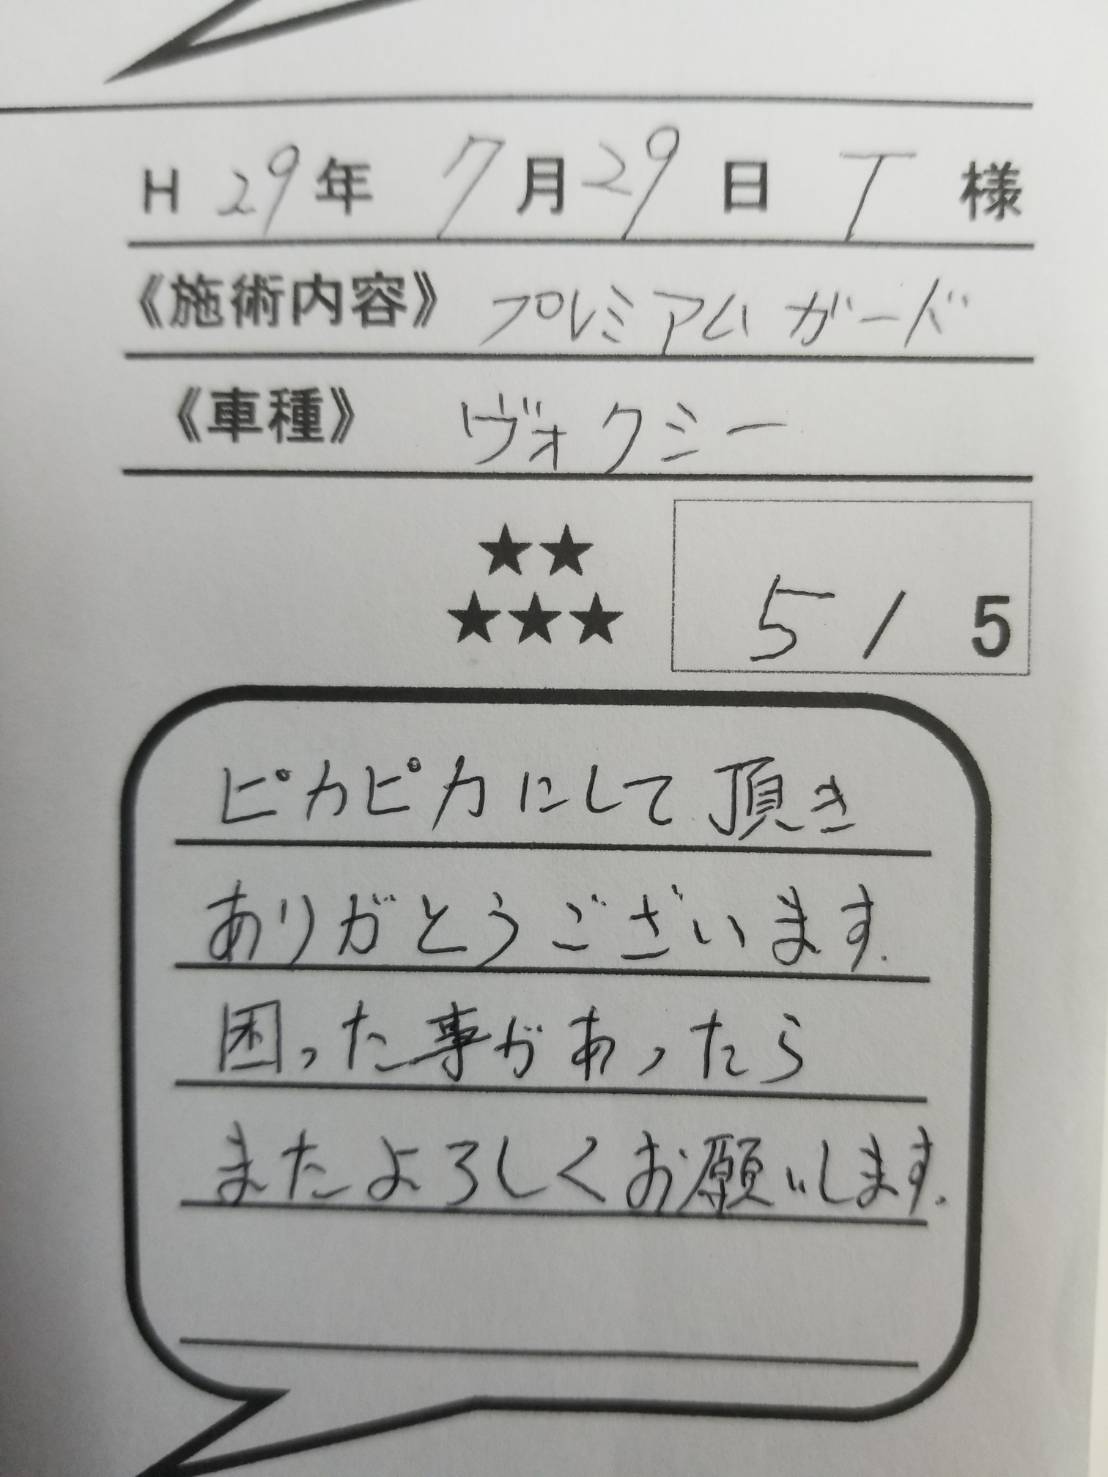 H 29年 7月29日 T 様
《施術内容》 プレミアムガード
《車種》 ヴォクシー
★★
★★★
5/5
ピカピカにして頂き
ありがとうございます.
困った事があったら
またよろしくお願いします.